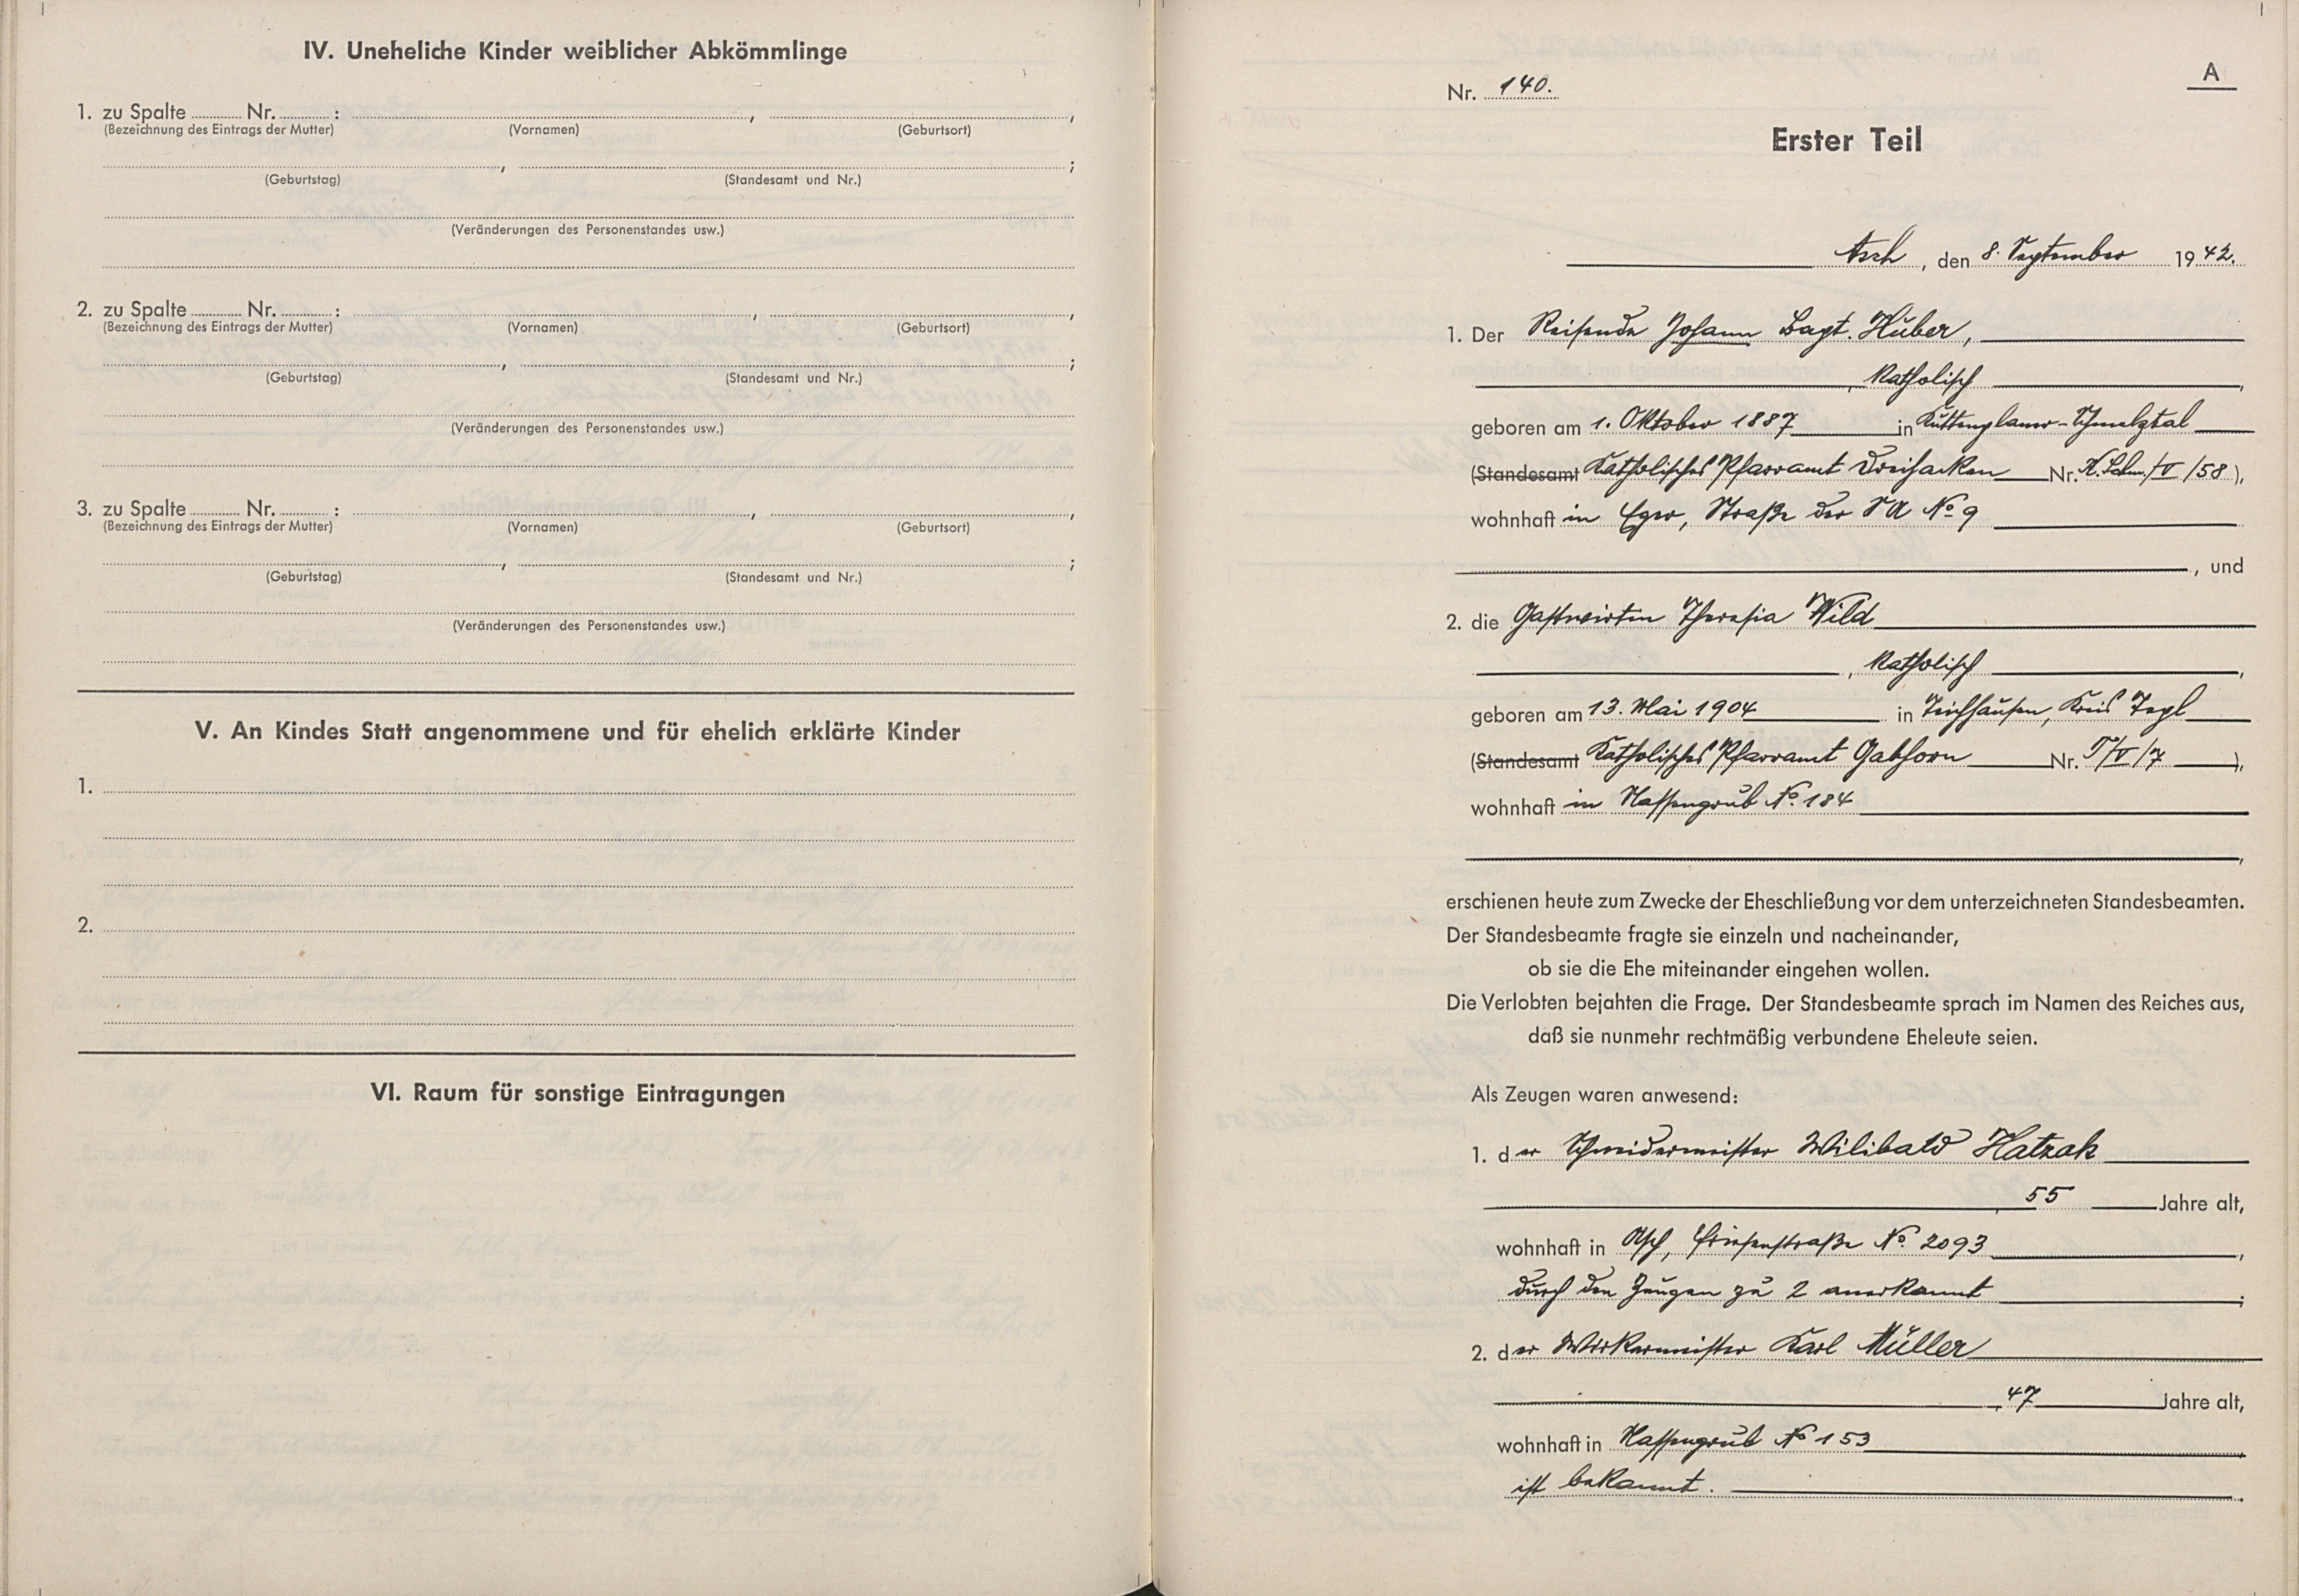 IV. Uneheliche Kinder weiblicher Abkömmlinge
1. zu Spalte Nr. : , ,
(Bezeichnung des Eintrags der Mutter) (Vornamen) (Geburtsort)
, ;
(Geburtstag) (Standesamt und Nr.)
(Veränderungen des Personenstandes usw.)
2. zu Spalte Nr. : , ,
(Bezeichnung des Eintrags der Mutter) (Vornamen) (Geburtsort)
, ;
(Geburtstag) (Standesamt und Nr.)
(Veränderungen des Personenstandes usw.)
3. zu Spalte Nr. : , ,
(Bezeichnung des Eintrags der Mutter) (Vornamen) (Geburtsort)
, ;
(Geburtstag) (Standesamt und Nr.)
(Veränderungen des Personenstandes usw.)
V. An Kindes Statt angenommene und für ehelich erklärte Kinder
1.
2.
VI. Raum für sonstige Eintragungen
A
Nr. 140.
Erster Teil
Asch, den 8. September 1942.
1. Der Reisende Johann Bapt. Huber,
, katholisch,
geboren am 1. Oktober 1887 in Kuttenplaner-Schmelztal
(Standesamt Katholisches Pfarramt Dreihacken Nr. K.Schm./V/58),
wohnhaft in Eger, Straße der SA No 9
, und
2. die Gastwirtin Theresia Wild
, katholisch,
geboren am 13. Mai 1904 in Teichhäusen, Kreis Tepl
(Standesamt Katholisches Pfarramt Gabhorn Nr. T/V/7),
wohnhaft in Nassengrub No. 184
,
erschienen heute zum Zwecke der Eheschließung vor dem unterzeichneten Standesbeamten.
Der Standesbeamte fragte sie einzeln und nacheinander,
ob sie die Ehe miteinander eingehen wollen.
Die Verlobten bejahten die Frage. Der Standesbeamte sprach im Namen des Reiches aus,
daß sie nunmehr rechtmäßig verbundene Eheleute seien.
Als Zeugen waren anwesend:
1. der Schneidermeister Wilibald Hatzak
, 55 Jahre alt,
wohnhaft in Asch, Friesenstraße No. 2093,
durch den Zeugen zu 2 anerkannt;
2. der Wirkermeister Karl Müller
, 47 Jahre alt,
wohnhaft in Nassengrub No 153,
ist bekannt.